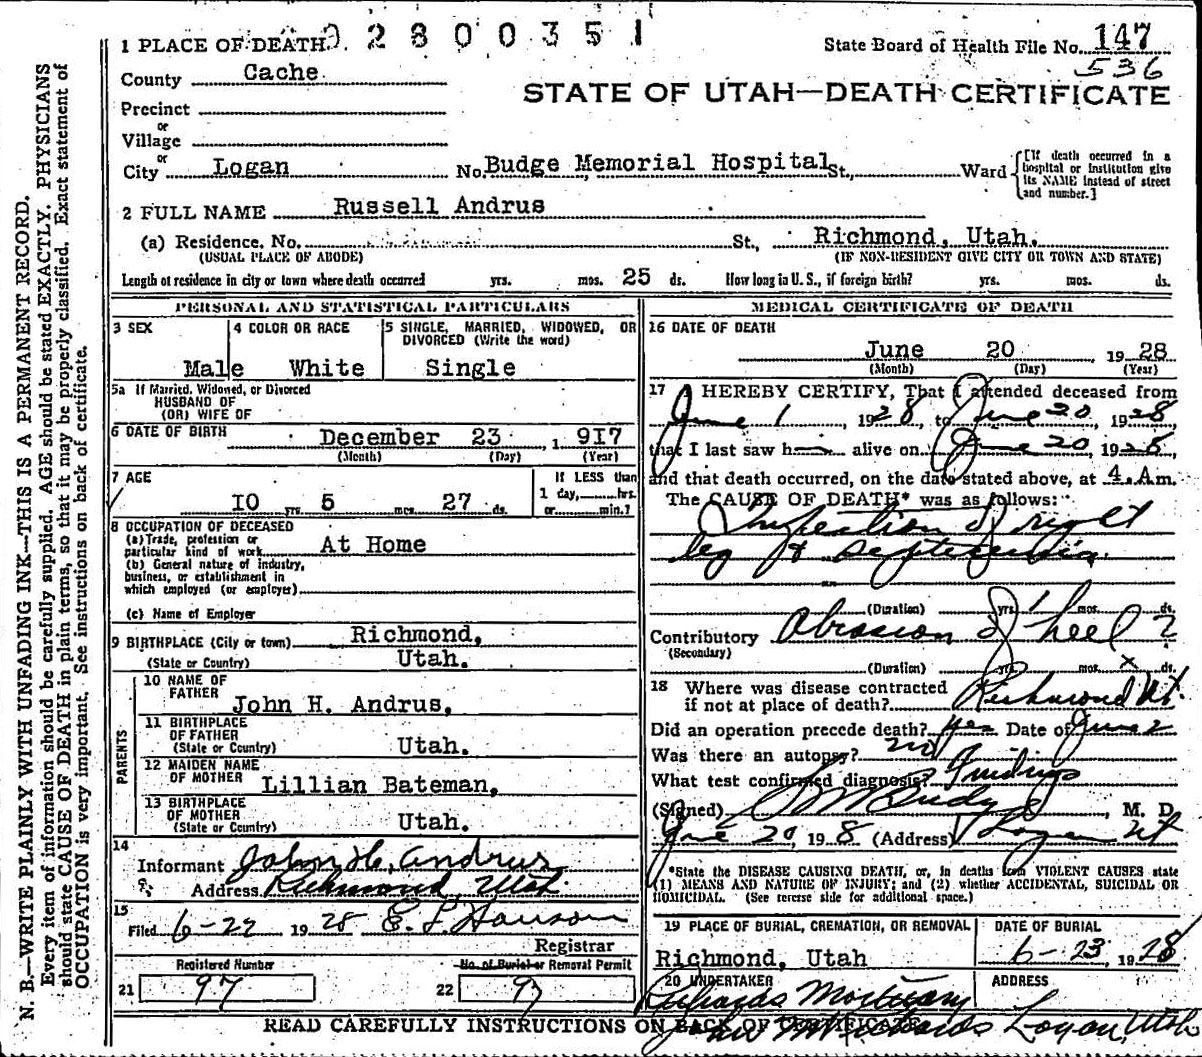 1 PLACE OF DEATH
0 2 8 0 0 3 5 1
State Board of Health File No. 147
536
County Cache
STATE OF UTAH—DEATH CERTIFICATE
Precinct
or
Village
or
City Logan No. Budge Memorial Hospital St., Ward
[If death occurred in a hospital or institution give its NAME instead of street and number.]
2 FULL NAME Russell Andrus
(a) Residence, No. St., Richmond, Utah.
(USUAL PLACE OF ABODE) (IF NON-RESIDENT GIVE CITY OR TOWN AND STATE)
Length of residence in city or town where death occurred yrs. mos. 25 ds. How long in U. S., if foreign birth? yrs. mos. ds.
PERSONAL AND STATISTICAL PARTICULARS
3 SEX 4 COLOR OR RACE 5 SINGLE, MARRIED, WIDOWED, OR
DIVORCED (Write the word)
Male White Single
5a If Married, Widowed, or Divorced
HUSBAND OF
(OR) WIFE OF
6 DATE OF BIRTH December 23 , 1 917
(Month) (Day) (Year)
7 AGE If LESS than
1 day, hrs.
IO yrs 5 mos 27 ds. or min.?
8 OCCUPATION OF DECEASED
(a) Trade, profession or
particular kind of work At Home
(b) General nature of industry,
business, or establishment in
which employed (or employer)
(c) Name of Employer
9 BIRTHPLACE (City or town) Richmond,
(State or Country) Utah.
PARENTS
10 NAME OF
FATHER John H. Andrus,
11 BIRTHPLACE
OF FATHER
(State or Country) Utah.
12 MAIDEN NAME
OF MOTHER Lillian Bateman,
13 BIRTHPLACE
OF MOTHER
(State or Country) Utah.
14
Informant John H. Andrus
Address Richmond Utah.
15
Filed 6-22 1928 E. L. Hanson
Registrar
Registered Number No. of Burial or Removal Permit
21 97 22 97
MEDICAL CERTIFICATE OF DEATH
16 DATE OF DEATH
June 20 , 19 28
(Month) (Day) (Year)
17 I HEREBY CERTIFY, That I attended deceased from
June 1 1928, to June 20, 1928,
that I last saw h alive on June 20, 1928,
and that death occurred, on the date stated above, at 4.A.m.
The CAUSE OF DEATH* was as follows:
Infection of right
leg & septicemia
(Duration) yrs. 1 mos. ds.
Contributory Abrasion of heel ?
(Secondary)
(Duration) yrs. mos. x ds.
18 Where was disease contracted
if not at place of death? Richmond Ut.
Did an operation precede death? yes Date of June 2
Was there an autopsy? no
What test confirmed diagnosis? Findings
(Signed) M. D.
June 20, 19 8 (Address) Logan Ut
*State the DISEASE CAUSING DEATH, or, in deaths from VIOLENT CAUSES state
(1) MEANS AND NATURE OF INJURY; and (2) whether ACCIDENTAL, SUICIDAL OR
HOMICIDAL. (See reverse side for additional space.)
19 PLACE OF BURIAL, CREMATION, OR REMOVAL DATE OF BURIAL
Richmond, Utah 6-23, 1928
20 UNDERTAKER ADDRESS
Richards Mortuary
READ CAREFULLY INSTRUCTIONS ON BACK OF CERTIFICATE
M Richards Logan, Utah
N. B.—WRITE PLAINLY WITH UNFADING INK—THIS IS A PERMANENT RECORD.
Every item of information should be carefully supplied. AGE should be stated EXACTLY. PHYSICIANS
should state CAUSE OF DEATH in plain terms, so that it may be properly classified. Exact statement of
OCCUPATION is very important. See instructions on back of certificate.